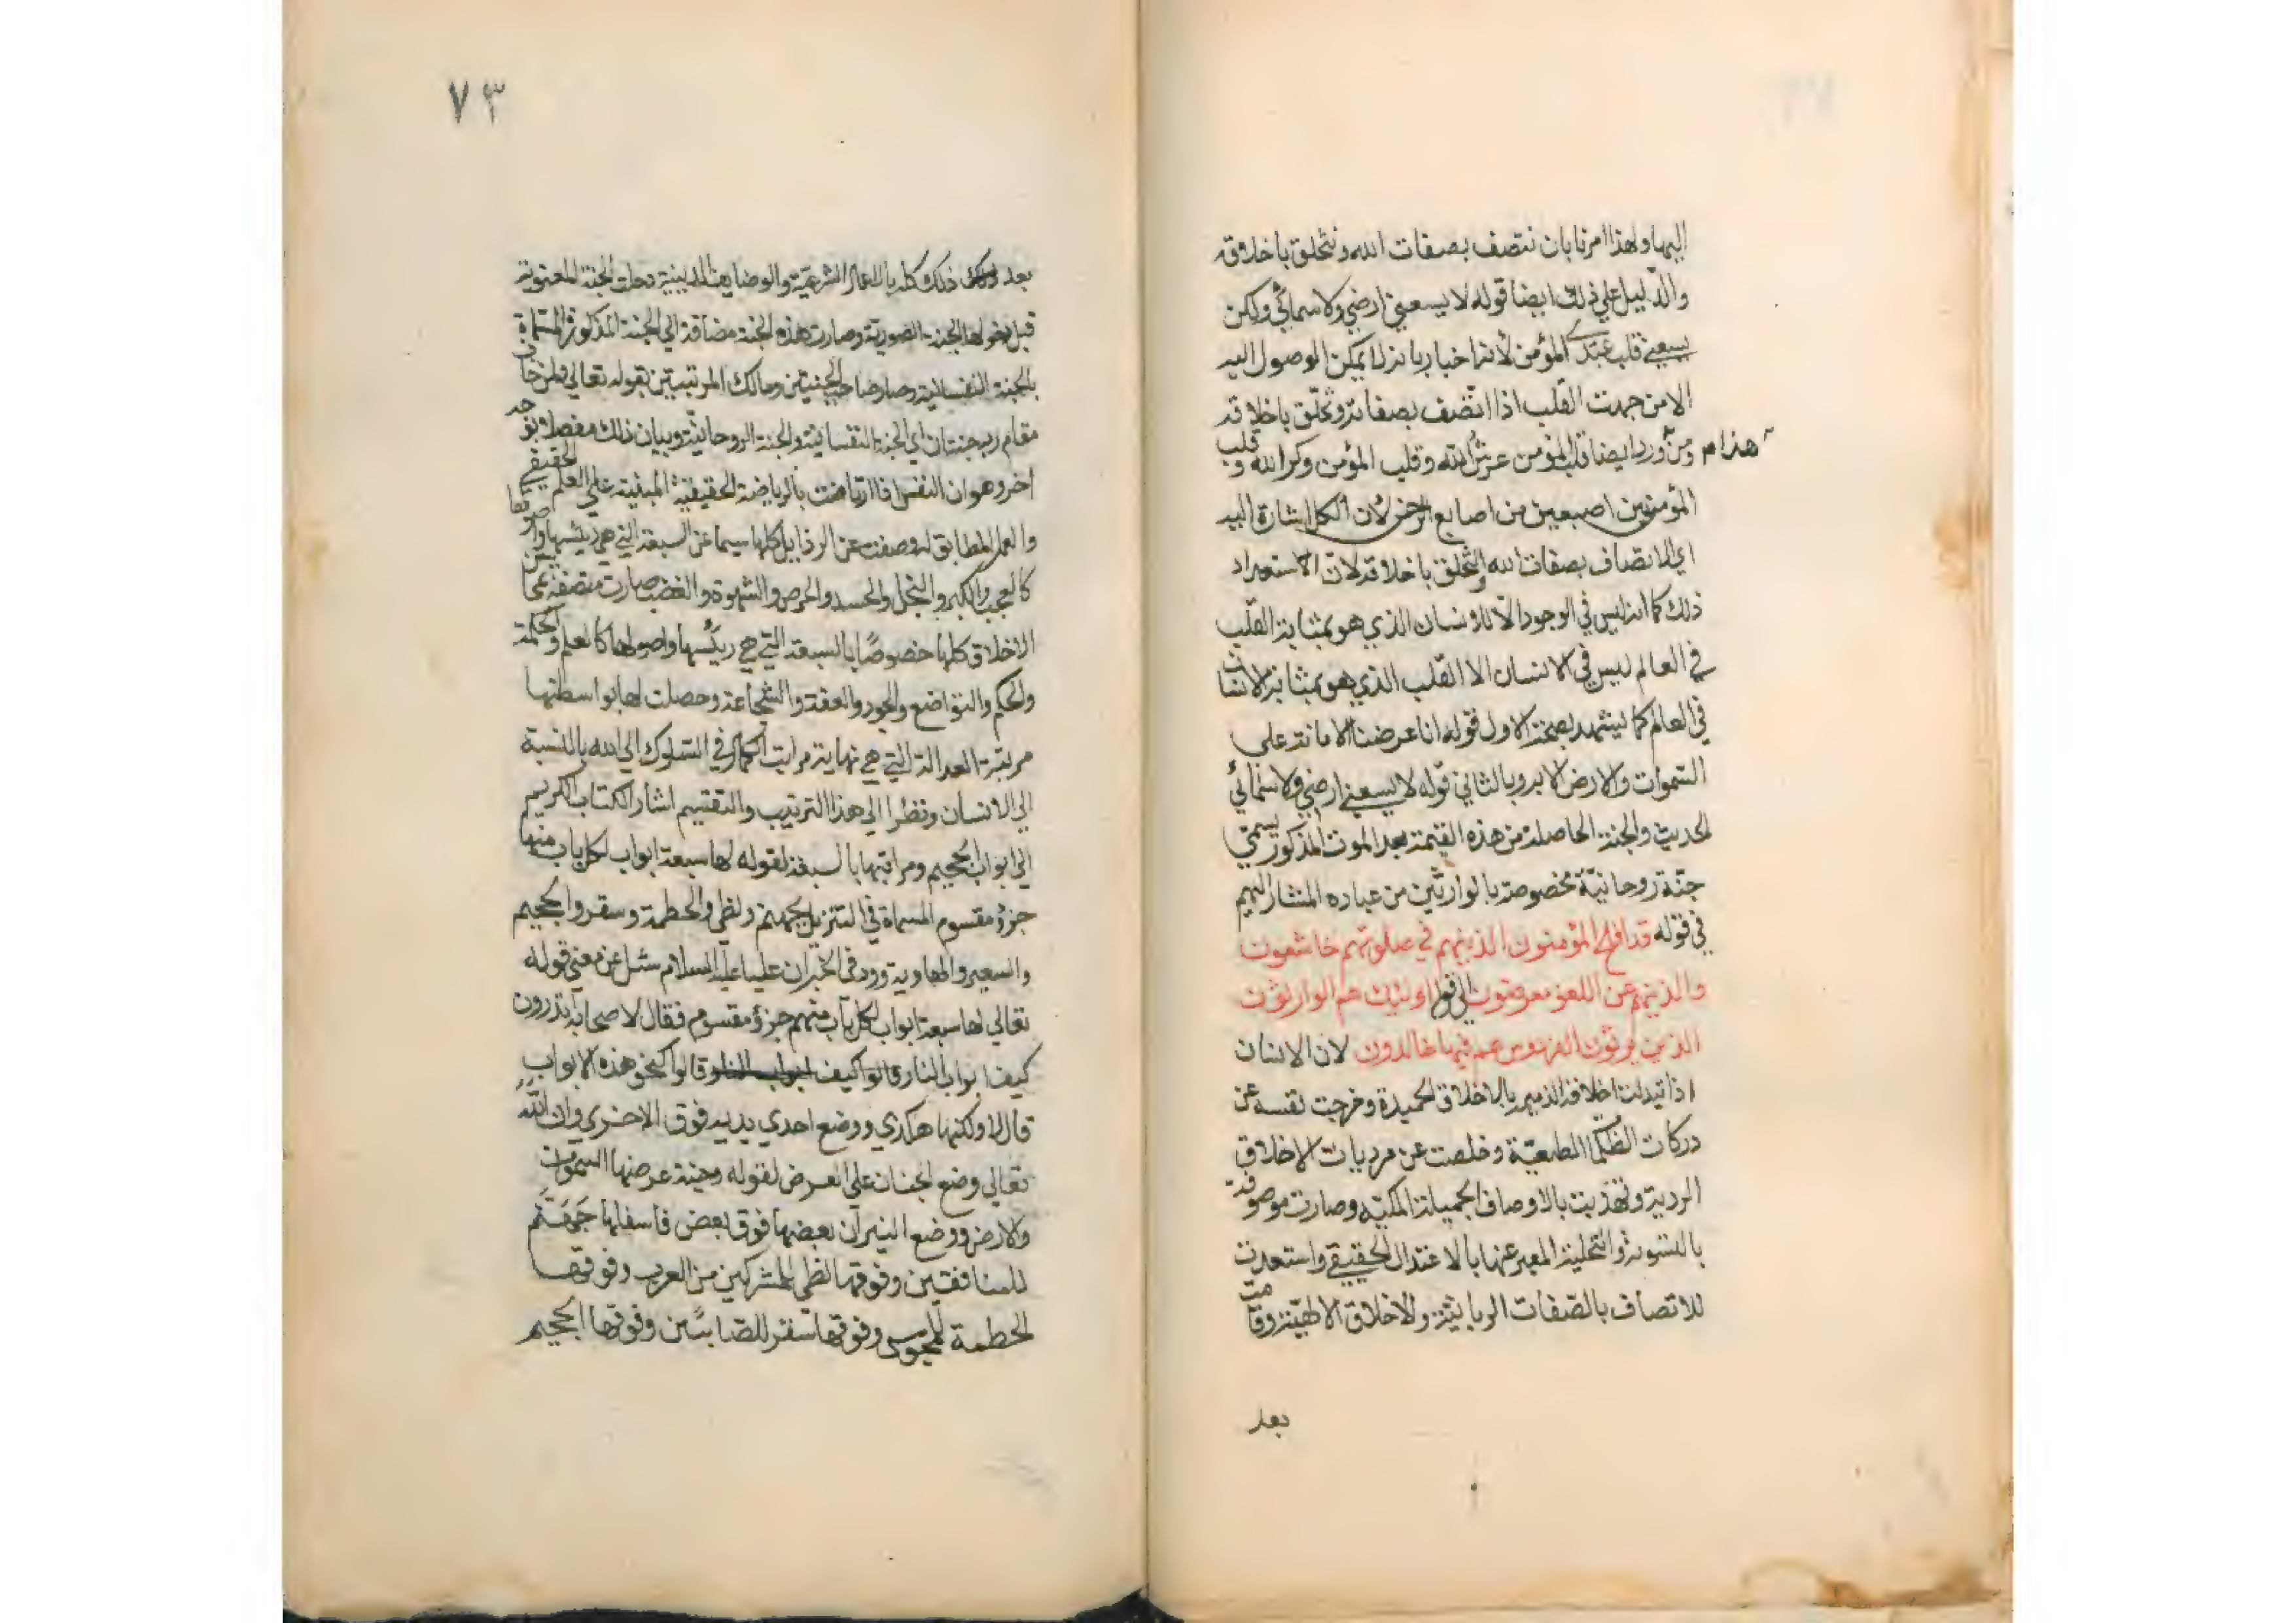 اليها ولهذا امرنا بان نتصف بصفات الله ونتخلق باخلاقه
والدليل علي ذلك ايضا قوله لا يسعني ارضي ولا سمائي ولكن
يسعني قلب عبدي المؤمن لأنه اخبار بانه لا يمكن الوصول اليه
الا من جهت القلب اذا اتصف بصفاته وتخلق باخلاقه
ومن هذا ورد ايضا قلب المؤمن عرش الله وقلب المؤمن وكر الله وقلب
المؤمن بين اصبعين من اصابع الرحمن لان الكل اشارة اليه
اي الاتصاف بصفات الله والتخلق باخلاقه لان الاستعداد
ذلك كما انه ليس في الوجود الا للانسان الذي هو بمثابة القلب
في العالم ليس في الانسان الا القلب الذي هو بمثابة الانسان
في العالم كما يشهد بصحة الاول قوله انا عرضنا الامانة علي
السموات والارض الايه وبالثاني قوله لا يسعني ارضي ولا سمائي
الحديث والجنة الحاصلة من هذه القيمة بعد الموت المذكور يسمي
جنة روحانية مخصوصة بالوارثين من عباده المشار اليهم
في قوله قد افلح المؤمنون الذين هم في صلوتهم خاشعون
والذين هم عن اللغو معرضون الي قوله اولئك هم الوارثون
الذين يرثون الفردوس هم فيها خالدون لان الانسان
اذا تبدلت اخلاقه الذميمة بالاخلاق الحميدة وخرجت نفسه عن
دركات الطبعية وخلصت عن مرديات الاخلاق
الردية وتهذبت بالاوصاف الجميلة الملكية وصارت موصوفة
بالتسوية والتحلية المعبر عنها بالاعتدال الحقيقي واستعدت
للاتصاف بالصفات الربانية والاخلاق الالهية وقامت
بعد
٧٣
بعد ذلك كله بالاعمال الشرعية والوضايف الدينية دخلت الجنة المعنوية
قبل دخولها الجنة الصورية وصارت هذه الجنة مضافة الي الجنة المذكورة المسماة
بالجنة النفسانية وصار صاحب الجنتين ومالك المرتبتين لقوله تعالي ولمن خاف
مقام ربه جنتان اي الجنة النفسانية والجنة الروحانية وبيان ذلك مفصلا بوجه
اخر وهو ان النفس اذا ارتاضت بالرياضة الحقيقية المبنية علي العلم الحقيقي
والعمل المطابق له وصفت عن الرذايل كلها سيما عن السبعة التي هي رئيسها واصولها
كالعجب والكبر والبخل والحسد والحرص والشهوة والغضب صارت متصفة بمحاسن
الاخلاق كلها خصوصًا بالسبعة التي هي رئيسها واصولها كالعلم والحكمة
والحكم والتواضع والجود والعفة والشجاعة وحصلت لها بواسطتها
مرتبة العدالة التي هي نهاية مراتب الكمال في السلوك الي الله بالنسبة
الي الانسان ونظرا الي هذا الترتيب والتقسيم اشار الكتاب الكريم
الي ابواب الجحيم ومراتبها بالسبعة لقوله لها سبعة ابواب لكل باب منها
جزؤ مقسوم المسماة في التنزيل بجهنم ولظي والحطمة وسقر والجحيم
والسعير والهاوية وورد في الخبر ان عليا عليه السلام سئل عن معني قوله
تعالي لها سبعة ابواب لكل باب منهم جزؤ مقسوم فقال لاصحابه اتدرون
كيف ابواب النار قالوا كيف ابواب النار قالوا كنحو هذه الابواب
قال لا ولكنها هكذي ووضع احدي يديه فوق الاخري وان الله
تعالي وضع الجنان علي العرض لقوله وجنة عرضها السموات
والارض ووضع النيران بعضها فوق بعض فاسفلها جهنم
للمنافقين وفوقها لظي للمشركين من العرب وفوقها
الحطمة للمجوس وفوقها سقر للصابئين وفوقها الجحيم